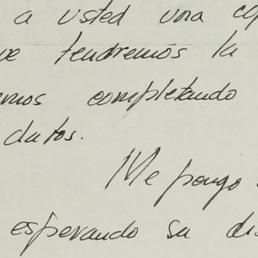 a usted una co
e tendremos la
mos completando
datos.
Me pongo
esperando su di